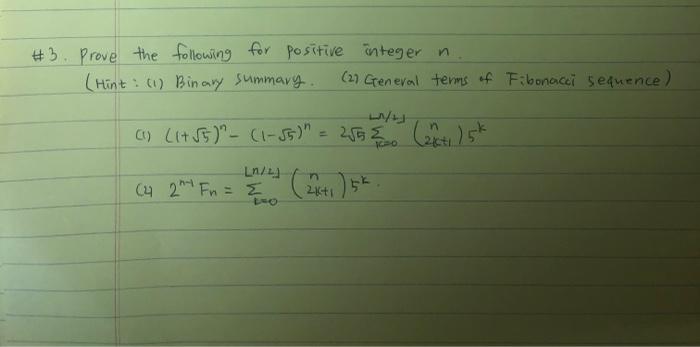 #3. Prove the following for positive integer n.
(Hint: (1) Binary summary. (2) General terms of Fibonacci sequence)
(1) (1+√5)ⁿ - (1-√5)ⁿ = 2√5 Σ_{k=0}^{⌊n/2⌋} (n 2k+1) 5^k
(2) 2^{n-1} Fn = Σ_{k=0}^{⌊n/2⌋} (n 2k+1) 5^k.